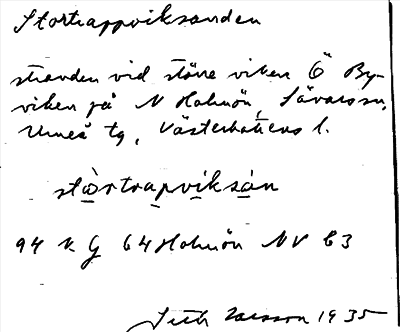 Stortrappviksanden
stranden vid större viken Ö By-
viken på N Holmön, Sävars sn,
Umeå tg, Västerbottens l.
stòrtrapviksán
94 K G 64 Holmön NV C3
1935